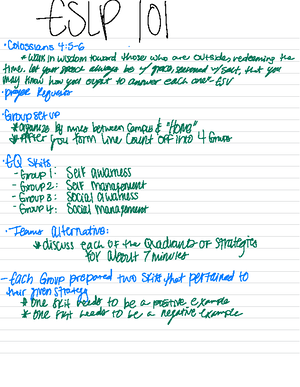 ESLP 101
• Colossians 4:5-6
* Walk in wisdom toward those who are outside, redeeming the
time. Let your speech always be w/ grace, seasoned w/ salt, that you
may know how you ought to answer each one - ESV
• prayer Requests
• Group set up
* organize by miles between campus & "Home"
* After you form line count off into 4 Groups
• EQ Skits
- Group 1: Self awareness
- Group 2: Self management
- Group 3: Social awareness
- Group 4: Social management
• Teams alternative:
* discuss each of the Quadrants of strategies
for about 7 minutes
- Each Group prepared two skits that pertained to
their given strategy
* one skit needs to be a positive example
* one skit needs to be a negative example